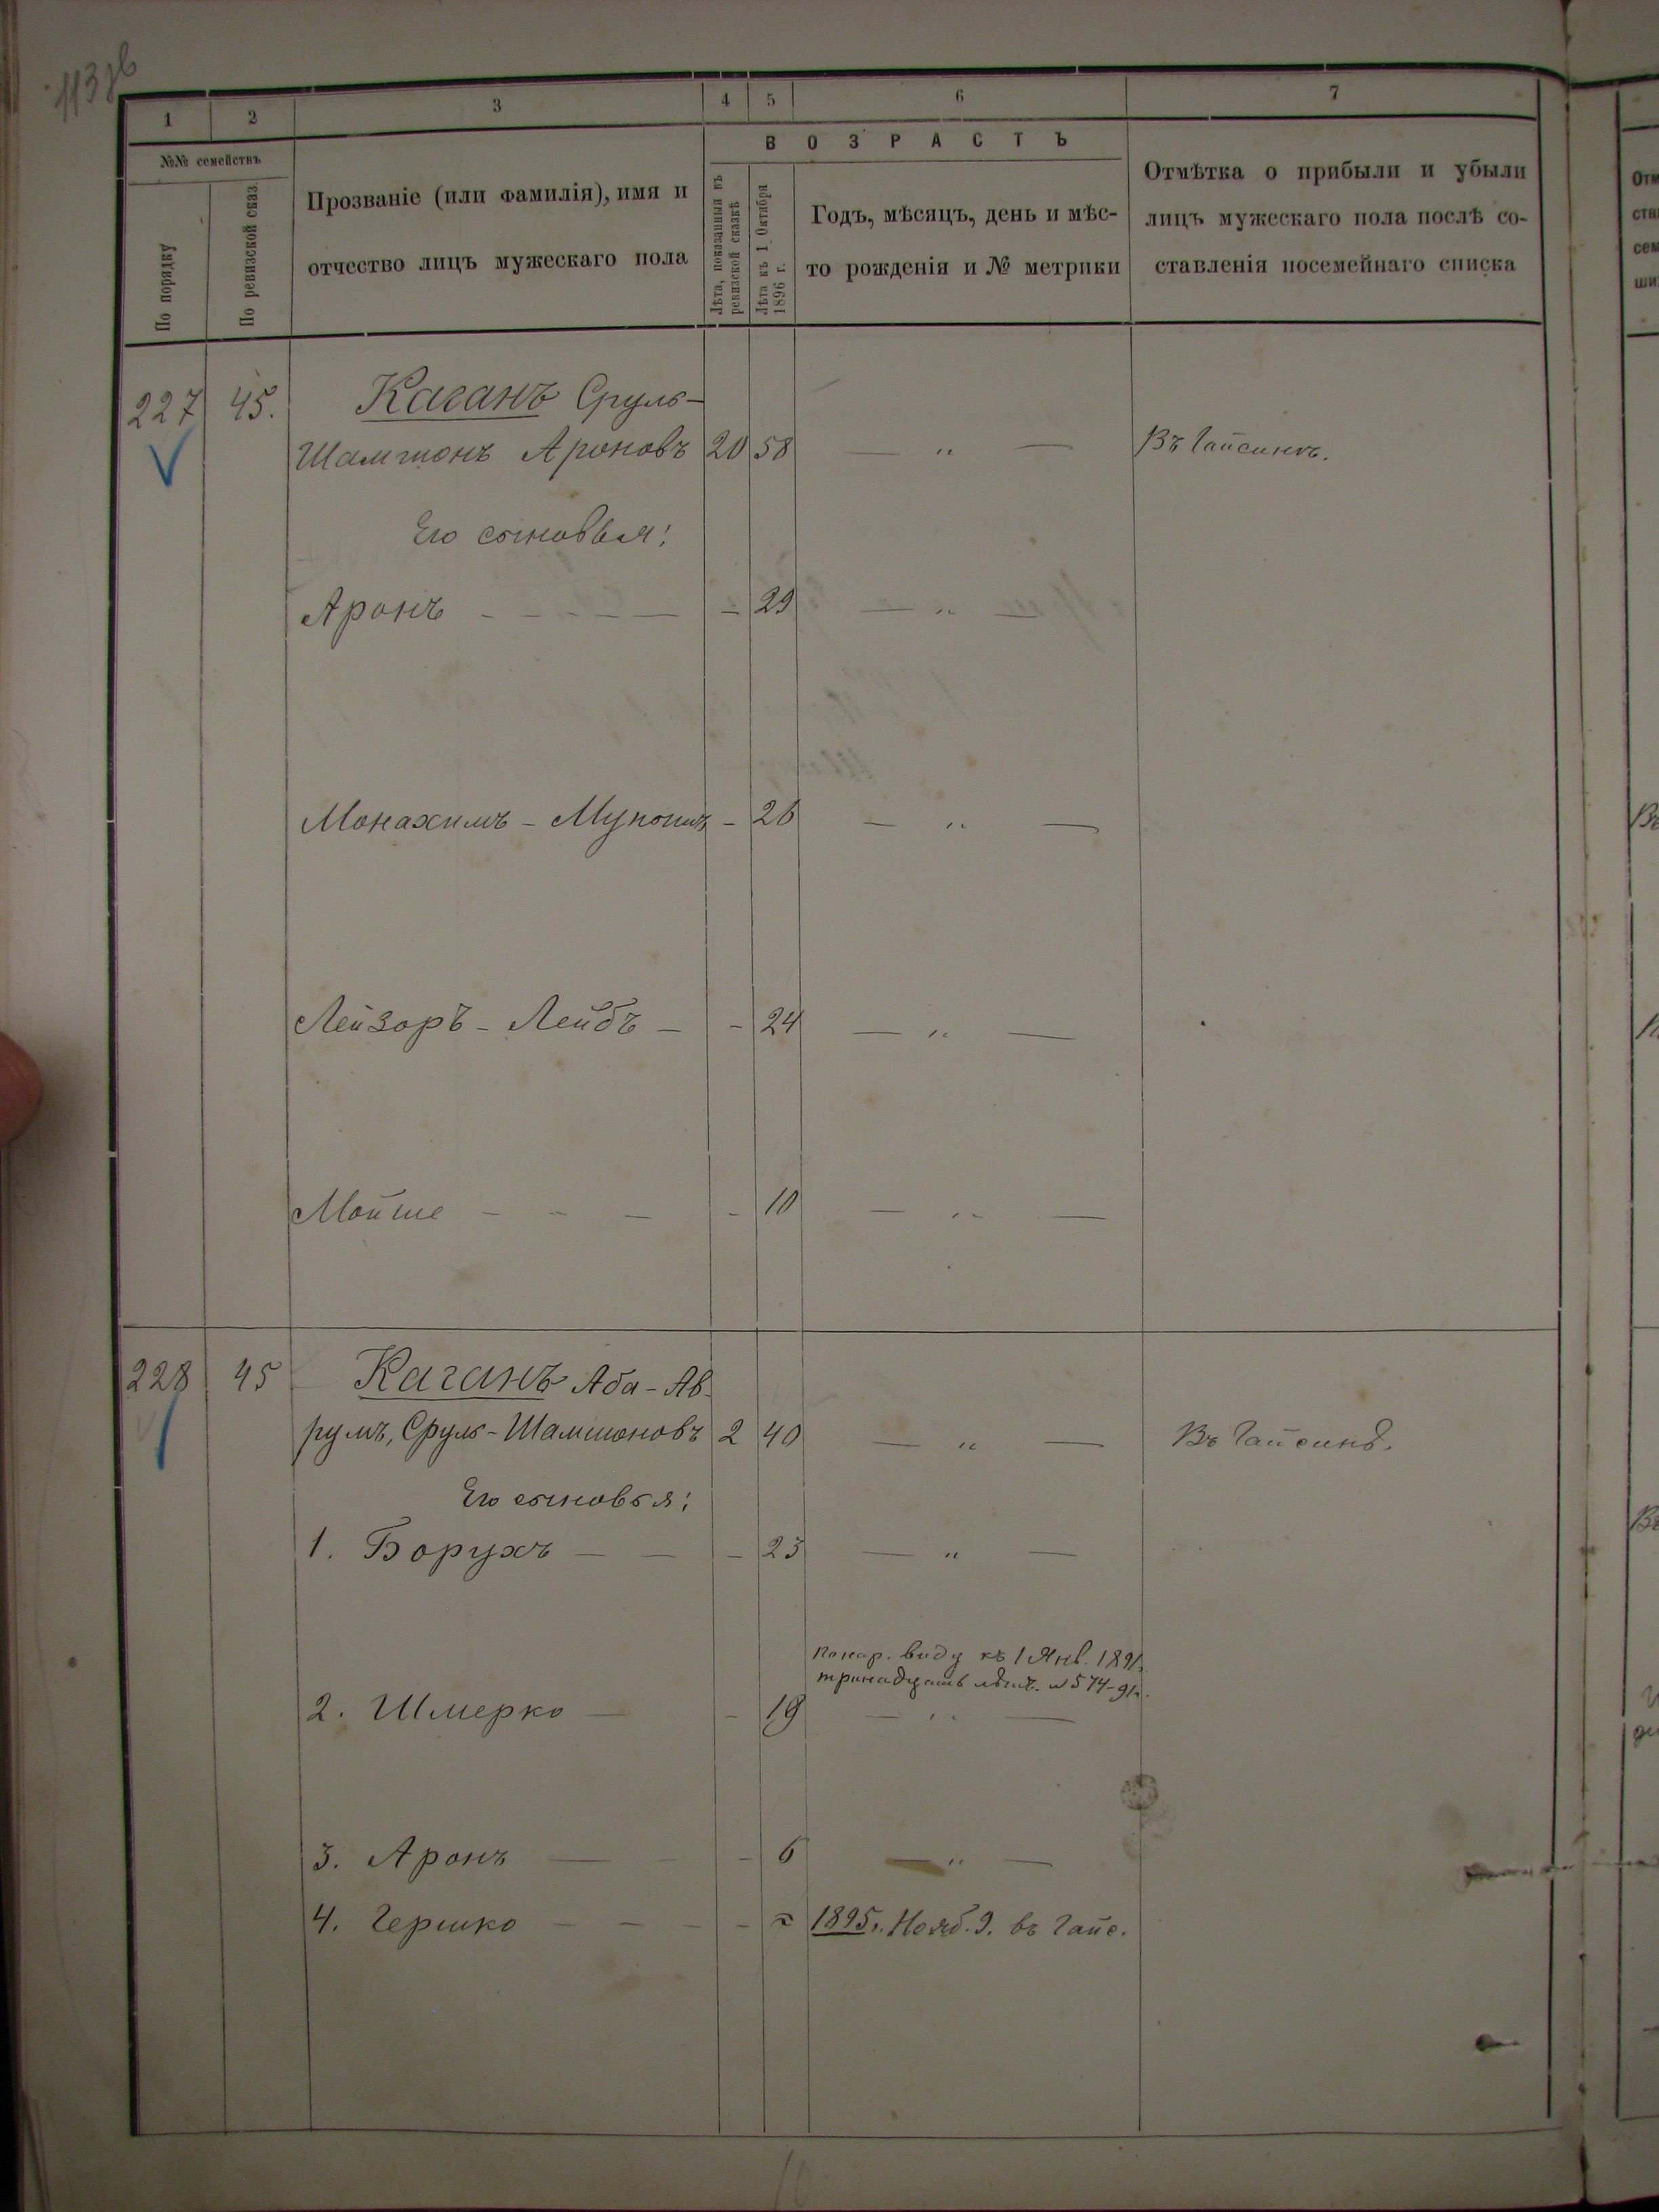 1 2 3 4 5 6 7
№№ семействъ
По порядку
По ревизской сказ.
Прозваніе (или фамилія), имя и
отчество лицъ мужескаго пола
ВОЗРАСТЪ
Лѣта, показанныя въ
ревизской сказкѣ
Лѣта къ 1 Октября
1896 г.
Годъ, мѣсяцъ, день и мѣс-
то рожденія и № метрики
Отмѣтка о прибыли и убыли
лицъ мужескаго пола послѣ со-
ставленія посемейнаго списка
227 45. Каганъ Сруль-
Шамшонъ Ароновъ 20 58 — „ — Въ Гайсинѣ.
Его сыновья:
Аронъ - - - - — - 29 — „ —
Монахимъ - - 26 — „ —
Лейзоръ - Лейбъ - - 24 — „ —
Мойше - - — - 10 — „ —
228 45 Каганъ Аба-Ав-
румъ, Сруль-Шамшоновъ 2 40 — „ — Въ Гайсинѣ.
Его сыновья:
1. Борухъ — — - 23 — „ —
по нар. виду къ 1 Янв. 1891г.
тринадцать лѣтъ. № 574-91г.
2. Шмерко — - 19 — „ —
3. Аронъ — - - 6 — „ —
4. Гершко - - - - 1895г. Нояб. 9. въ Гайс.